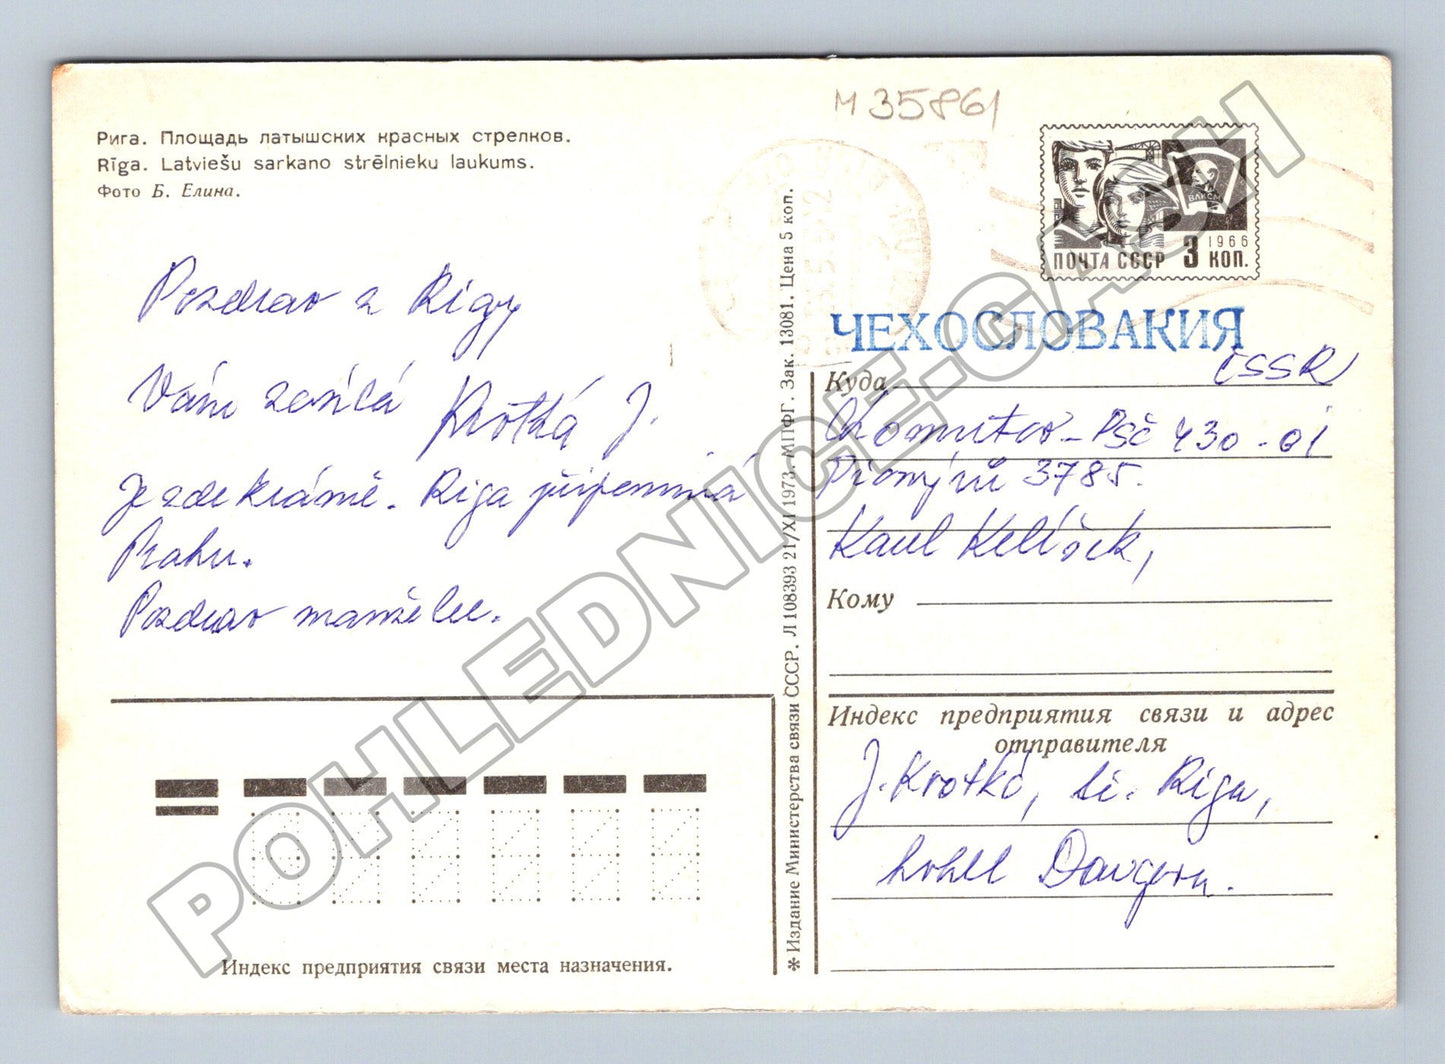 Рига. Площадь латышских красных стрелков.
Rīga. Latviešu sarkano strēlnieku laukums.
Фото Б. Елина.
Pozdrav z Rigy
Vám zasílá Krotká J.
Je zde krásně. Riga připomíná
Prahu.
Pozdrav manželce.
Индекс предприятия связи места назначения.
✻ Издание Министерства связи СССР. Л 108393 21/XI 1973. МПФГ. Зак. 13081. Цена 5 коп.
М 35861
ВЛКСМ
1966
ПОЧТА СССР 3 КОП.
ЧЕХОСЛОВАКИЯ
Куда ČSSR
Chomutov - PSČ 430 - 01
Pionýrů 3785.
Karel
Кому
Индекс предприятия связи и адрес
отправителя
J. Krotká, Riga,
hotel Daugava.
POHLEDNICE.CASH